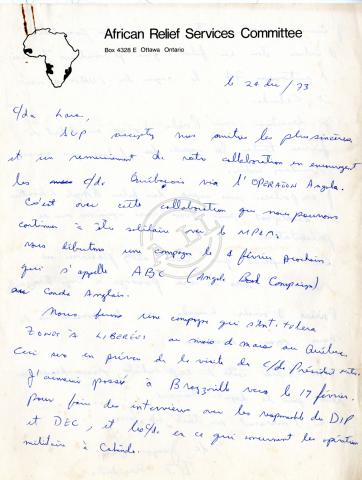 African Relief Services Committee
Box 4328 E Ottawa Ontario
le 20 déc/73
c/da Lara,
SVP acceptez nos amitiés les plus sincères
et un remerciement de votre collaboration en encourageant
les c/da Québecois via l'OPERATION Angola.
C'est avec cette collaboration que nous pouvons
continuer à être solidaire avec le MPLA.
Nous débutons une campagne le 4 février prochain
qui s'appelle ABC (Angola Book Campaign)
au Canada Anglais.
Nous ferons une campagne qui s'intitulera
ZONES LIBERÉES au mois de mars au Québec.
Ceci sera en prévue de la visite du c/da Président
J'aimerais passer à Brazzaville vers le 17 février
pour faire des interviews avec les responsables du DIP
et DEC, et en ce qui concernent les opérations
militaire à Cabinda.